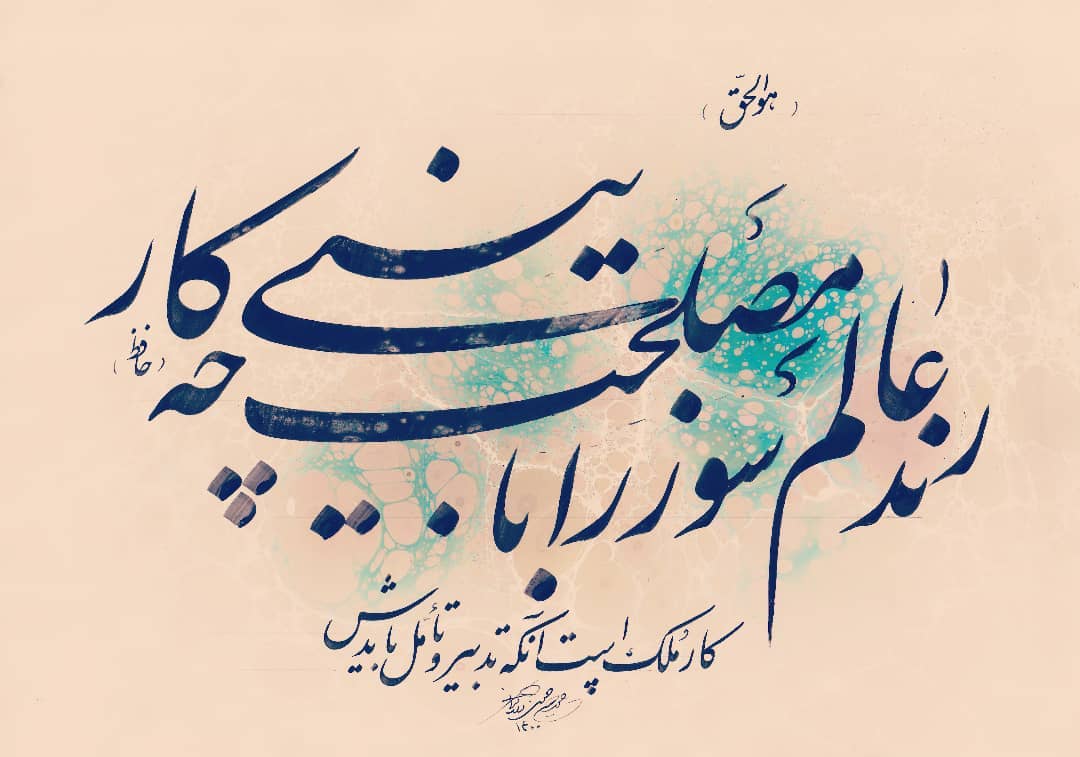 (هوالحق)
رند عالم سوز را با مصلحت بینی چه کار
(حافظ)
کار مُلک است آنکه تدبیر و تأمل بایدش
۱۴۰۰